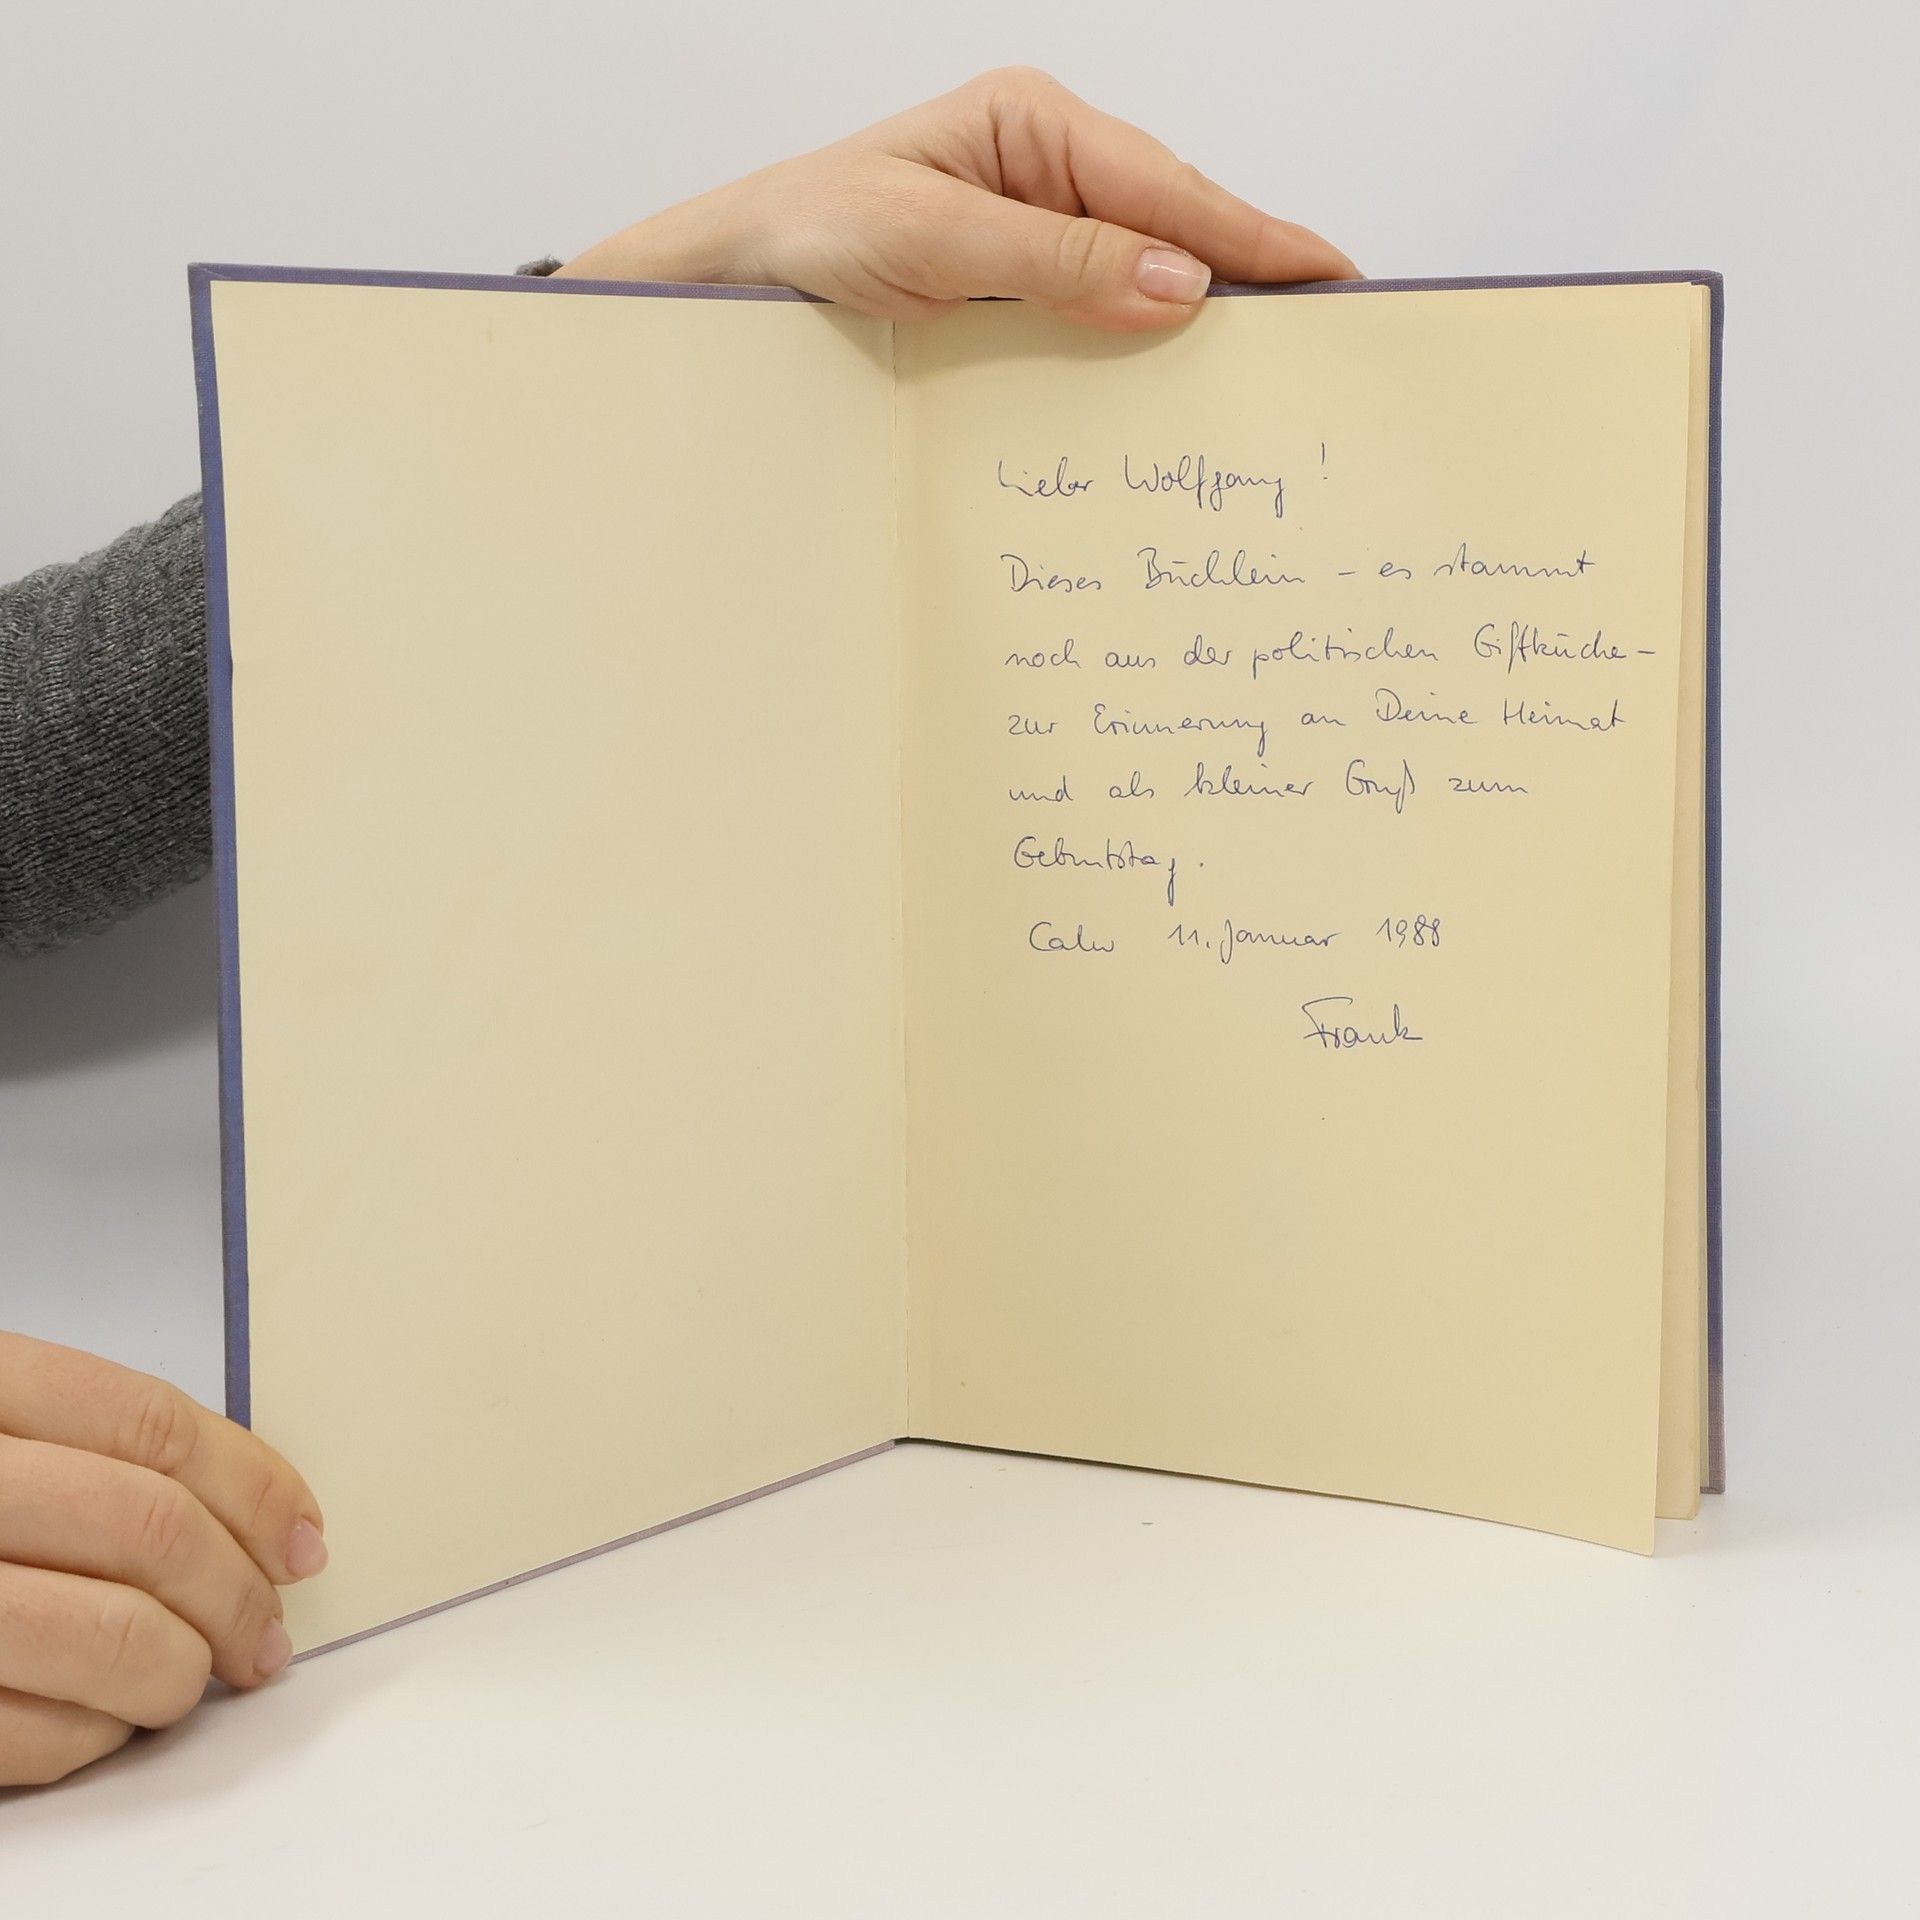 Lieber Wolfgang!
Dieses Büchlein – es stammt
noch aus der politischen Giftküche –
zur Erinnerung an Deine Heimat
und als kleiner Gruß zum
Geburtstag.
Calw 11. Januar 1988
Frank